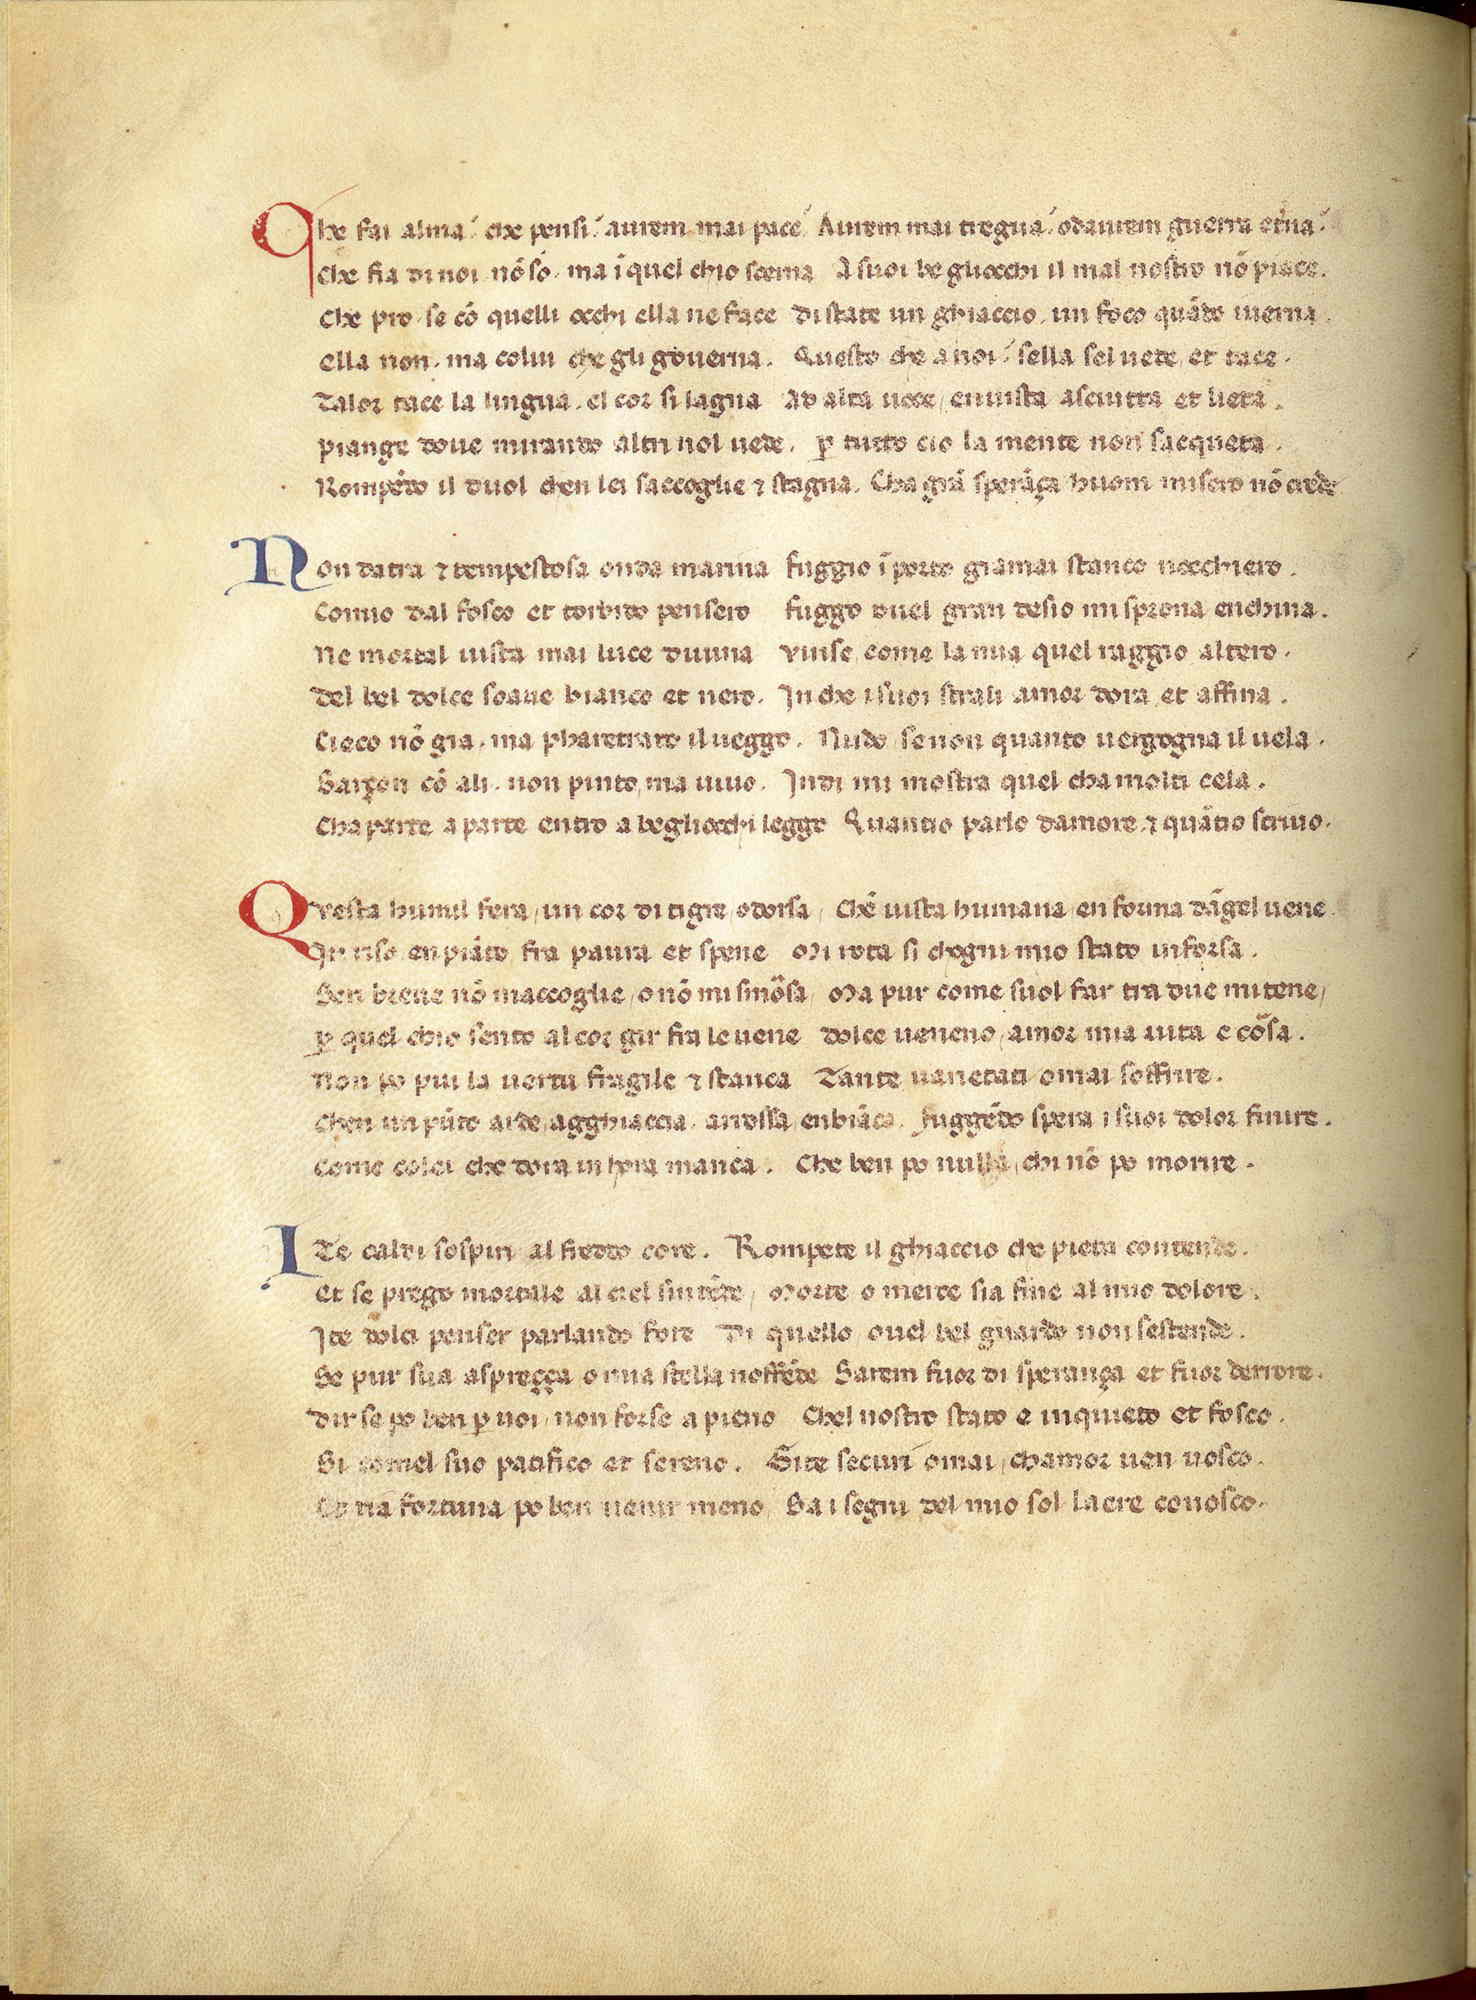 Che fai alma? che pensi? aurem mai pace? Aurem mai tregua? od aurem guerra et̃na?
Che fia di noi nõ so. ma ĩ quel chio scerna A suoi begliocchi il mal nostro nõ piace.
Che pro. se cõ quelli occhi ella ne face di state un ghiaccio. un foco quãdo iuerna.
Ella non. ma colui che gli gouerna. Questo che anoi? sella sel uede, et tace.
Talor tace la lingua. el cor si lagna Ad alta uoce, enuista asciutta et lieta.
piange doue mirando altri nol uede. ꝑ tutto cio la mente non sacqueta.
Rompẽdo il duol chen lei saccoglie ⁊ stagna. Cha grã sperãça huom misero nõ crede
Non datra ⁊ tempestosa onda marina fuggio ĩ porto giamai stanco nocchiero.
Comio dal fosco et torbido pensero fuggo ouel gran desio mi sprona enchina.
Ne mortal uista mai luce diuina vinse, come la mia quel raggio altero.
del bel dolce soaue bianco et nero. In che i suoi strali amor dora, et affina.
Cieco nõ gia. ma pharetrato il ueggo. Nudo, senon quanto uergogna il uela.
Garçon cõ ali. non pinto, ma uiuo. Indi mi mostra quel cha molti cela.
Cha parte a parte entro a begliocchi leggo Quantio parlo damore, ⁊ quãtio scriuo.
Qvesta humil fera, un cor di tigre, o dorsa, Chẽ uista humana, en forma dãgel uene
In riso, en piãto fra paura et spene Mi rota si chogni mio stato inforsa.
Sen breue nõ maccoglie, o nõ mi smõsa, Ma pur come suol far tra due mi tene,
ꝑ quel chio sento al cor gir fra le uene dolce ueneno, amor mia uita e cõsa.
Non po piu la uertu fragile ⁊ stanca Tante uarietati omai soffrire.
Chen un pũto arde, agghiaccia. arrossa, enbiãca. fuggẽdo spera i suoi dolor finire.
Come colei che dora in hora manca. Che ben po nulla, chi nõ po morire.
ITe caldi sospiri al freddo core. Rompete il ghiaccio che pieta contende.
Et se prego mortale al ciel sintẽde, Morte o merce sia fine al mio dolore.
Ite dolci penser parlando fore Di quello ouel bel guardo non sestende.
Se pur sua asprecça o mia stella noffẽde Sarem fuor di sperança et fuor derrore.
dir se po ben ꝑ uoi, non forse a pieno Chel nostro stato e inquieto et fosco.
Si comel suo pacifico et sereno. Gite securi omai, chamor uen uosco.
Et ria fortuna po ben uenir meno, Sa i segni del mio sol laere conosco.